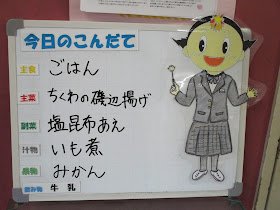 今日のこんだて
主食 ごはん
主菜 ちくわの磯辺揚げ
副菜 塩昆布あえ
汁物 いも煮
果物 みかん
飲み物 牛乳